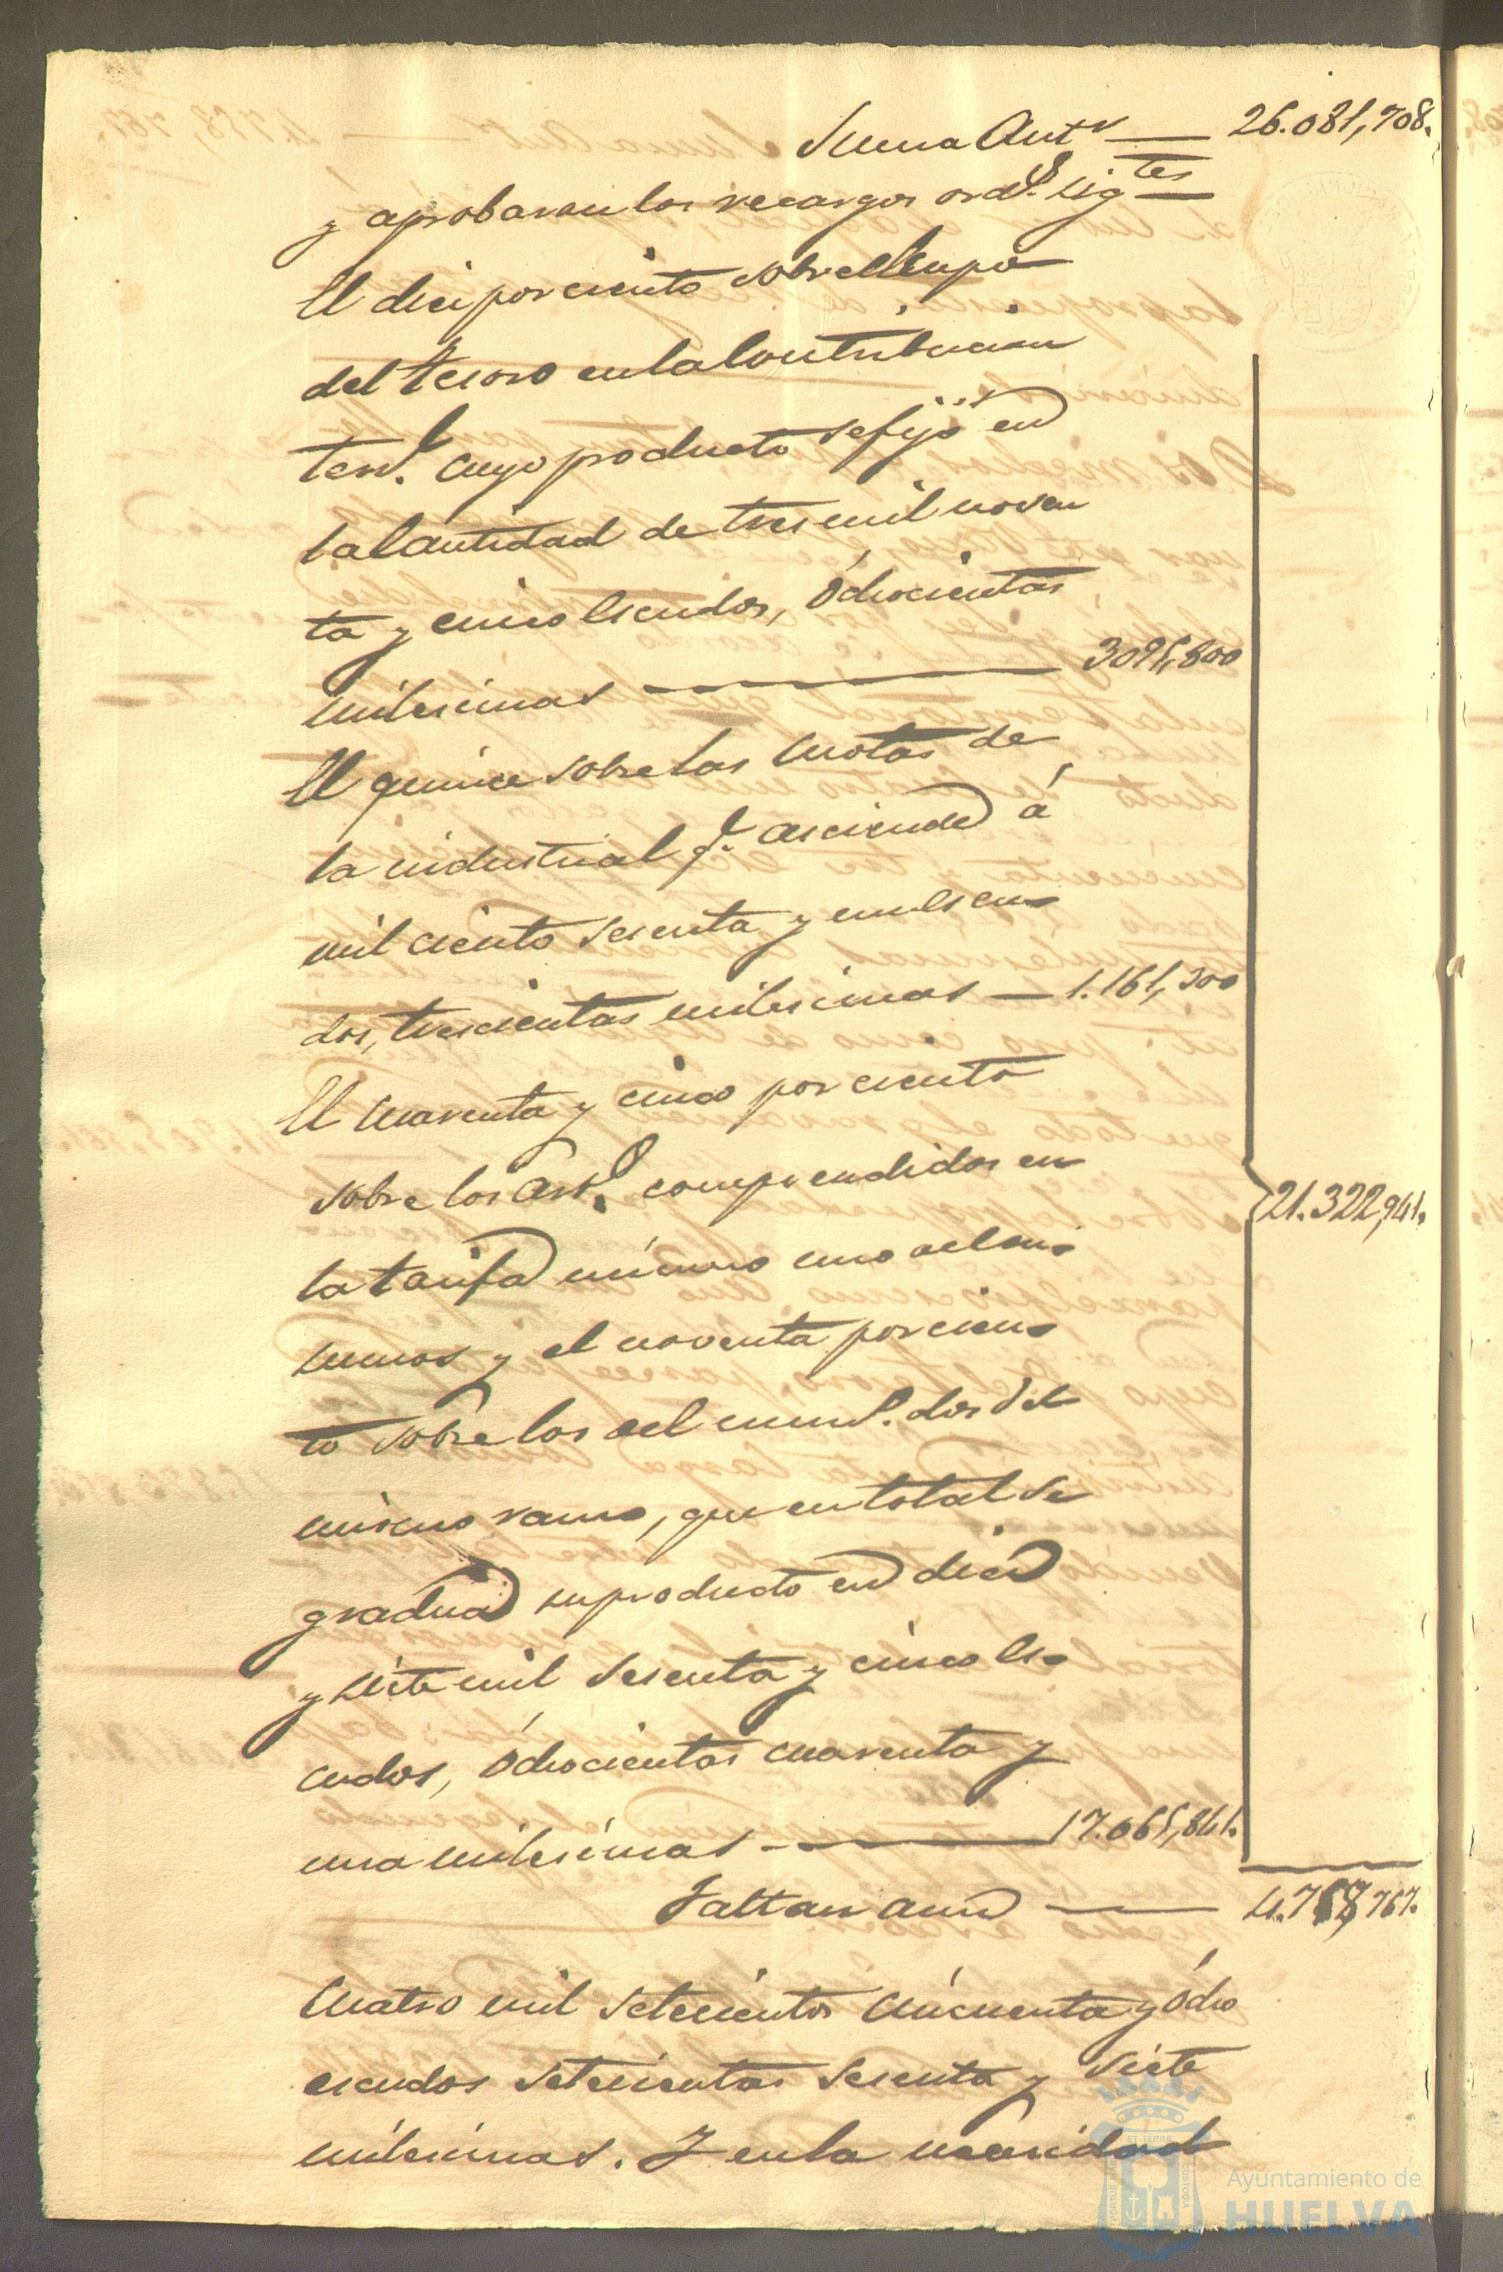 Suma Antr — 26.081,708.
y aprobaron los recargos ords. sigtes —
El diez por ciento sobre el Cupo
del tesoro en la Contribucion
terrl. cuyo producto se fijó en
la Cantidad de tres mil noven
ta y cinco Escudos, óchocientas
milesimas — 3095,800
El quince sobre las Cuotas de
la industrial q.e asciende á
mil ciento sesenta y un Escu-
dos, trescientas milesimas — 1.161,300
El Cuarenta y cinco por ciento
sobre los Arts. comprendidos en
la tarifa número uno de Con-
sumos y el noventa por cien-
to sobre los del numº. dos del
mismo ramo, que en total se
gradua su producto en diez
y siete mil sesenta y cinco Es-
cudos, óchocientas cuarenta y
una milesimas — 17.065,841.
21.322,941.
Faltan aun — 4.758,767.
Cuatro mil setecientos Cincuenta y ócho
escudos setecientas sesenta y siete
milesimas. Y en la necesidad
Ayuntamiento de
HUELVA